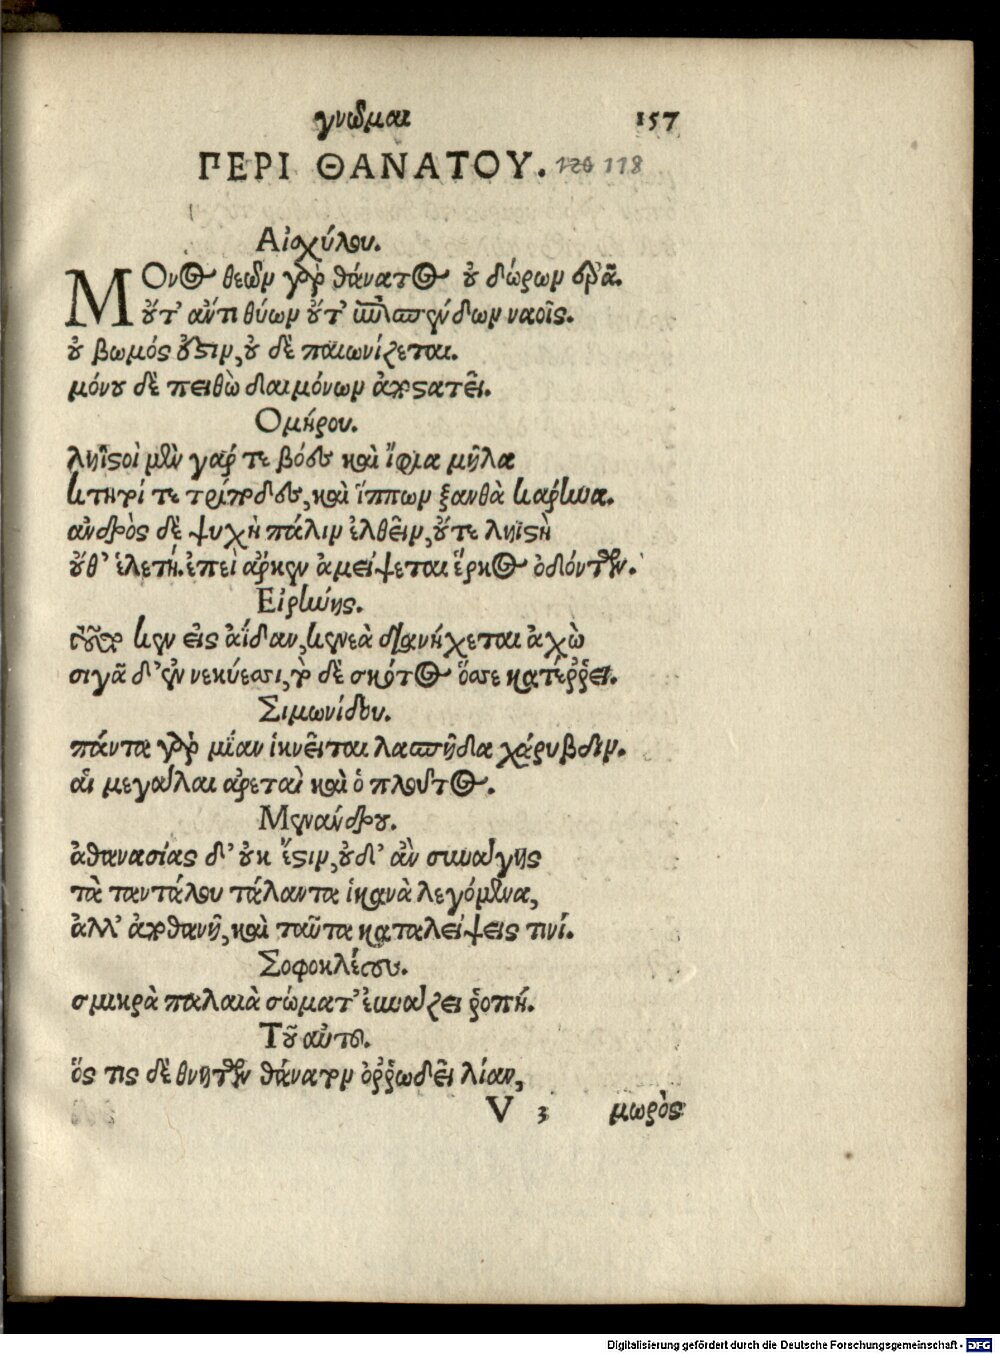 γνῶμαι 157
ΠΕΡΙ ΘΑΝΑΤΟΥ. 120 118
Αἰσχύλου.
ΜΟνος θεῶν γὰρ θάνατος οὐ δώρων ἐρᾷ.
οὔτ' ἄν τι θύων οὔτ' ἐπισπένδων ναοῖς.
οὐ βωμός ἐστιν, οὐ δὲ παιωνίζεται.
μόνου δὲ πειθὼ δαιμόνων ἀποστατεῖ.
Ομήρου.
ληϊστοὶ μὲν γάρ τε βόες καὶ ἴφια μῆλα
κτητοί τε τρίποδες, καὶ ἵππων ξανθὰ κάρηνα.
ἀνδρὸς δὲ ψυχὴ πάλιν ἐλθεῖν, οὔτε ληϊστὴ
οὔθ' ἑλετή. ἐπεὶ ἄρκεν ἀμείψεται ἕρκος ὀδόντων.
Εἰρήνης.
κεν εἰς ἀΐδαν, κενεὰ διανήχεται ἀχὼ
σιγᾶ δ' ἐν νεκύεσσι, τὸ δὲ σκότος ὄσσε κατέρρει.
Σιμωνίδου.
πάντα γὰρ μίαν ἱκνεῖται δασπλῆτα χάρυβδιν.
αἱ μεγάλαι ἀρεταὶ καὶ ὁ πλοῦτος.
Μενάνδρου.
ἀθανασίας δ' οὐκ ἔστιν, οὐδ' ἂν συναγάγῃς
τὰ ταντάλου τάλαντα ἱκανὰ λεγόμενα,
ἀλλ' ἀποθανῇ, καὶ ταῦτα καταλείψεις τινί.
Σοφοκλέους.
σμικρὰ παλαιὰ σώματ' εὐνάζει ῥοπή.
Τοῦ αὐτοῦ.
ὅς τις δὲ θνητῶν θάνατον ὀρρωδεῖ λίαν,
V 3 μωρὸς
Digitalisierung gefördert durch die Deutsche Forschungsgemeinschaft - DFG